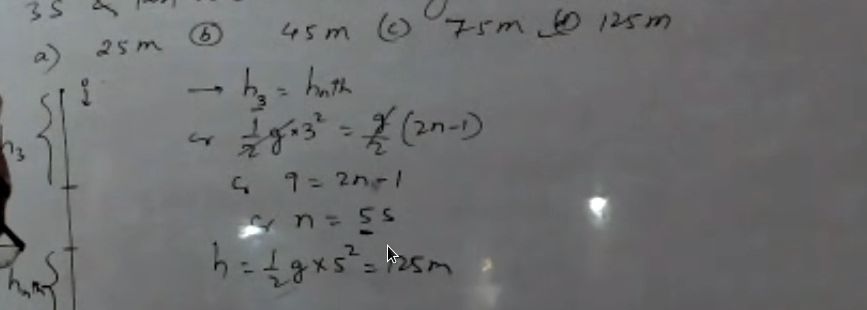 3S &
a) 25m (b) 45m (c) 75m (d) 125m
→ h₃ = hₙth
or 1/2 g × 3² = g/2 (2n-1)
or 9 = 2n-1
or n = 5s
h = 1/2 g × 5² = 125m
h₃
hₙth